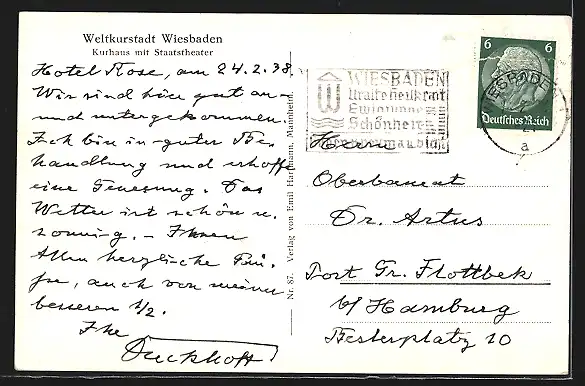 Weltkurstadt Wiesbaden
Kurhaus mit Staatstheater
Hotel Rose, am 24.2.38.
Wir sind hier gut an-
und untergekommen.
Ich bin in guter Be,
handlung und erhoffe
eine Genesung. Das
Wetter ist schön u.
sonnig. – Ihnen
Allen herzliche Grü,
sse, auch von meiner
besseren 1/2.
Ihr
Duckhoff
Nr. 87. Verlag von Emil Hartmann, Mannheim.
WIESBADEN
Uralte Heilkraft
Ewigjunge
Schönheit
WIESBADEN
a
6 6
Deutsches Reich
Herrn
Oberbaurat
Dr. Artus
Post Gr. Flottbek
b/ Hamburg
Besterplatz 10